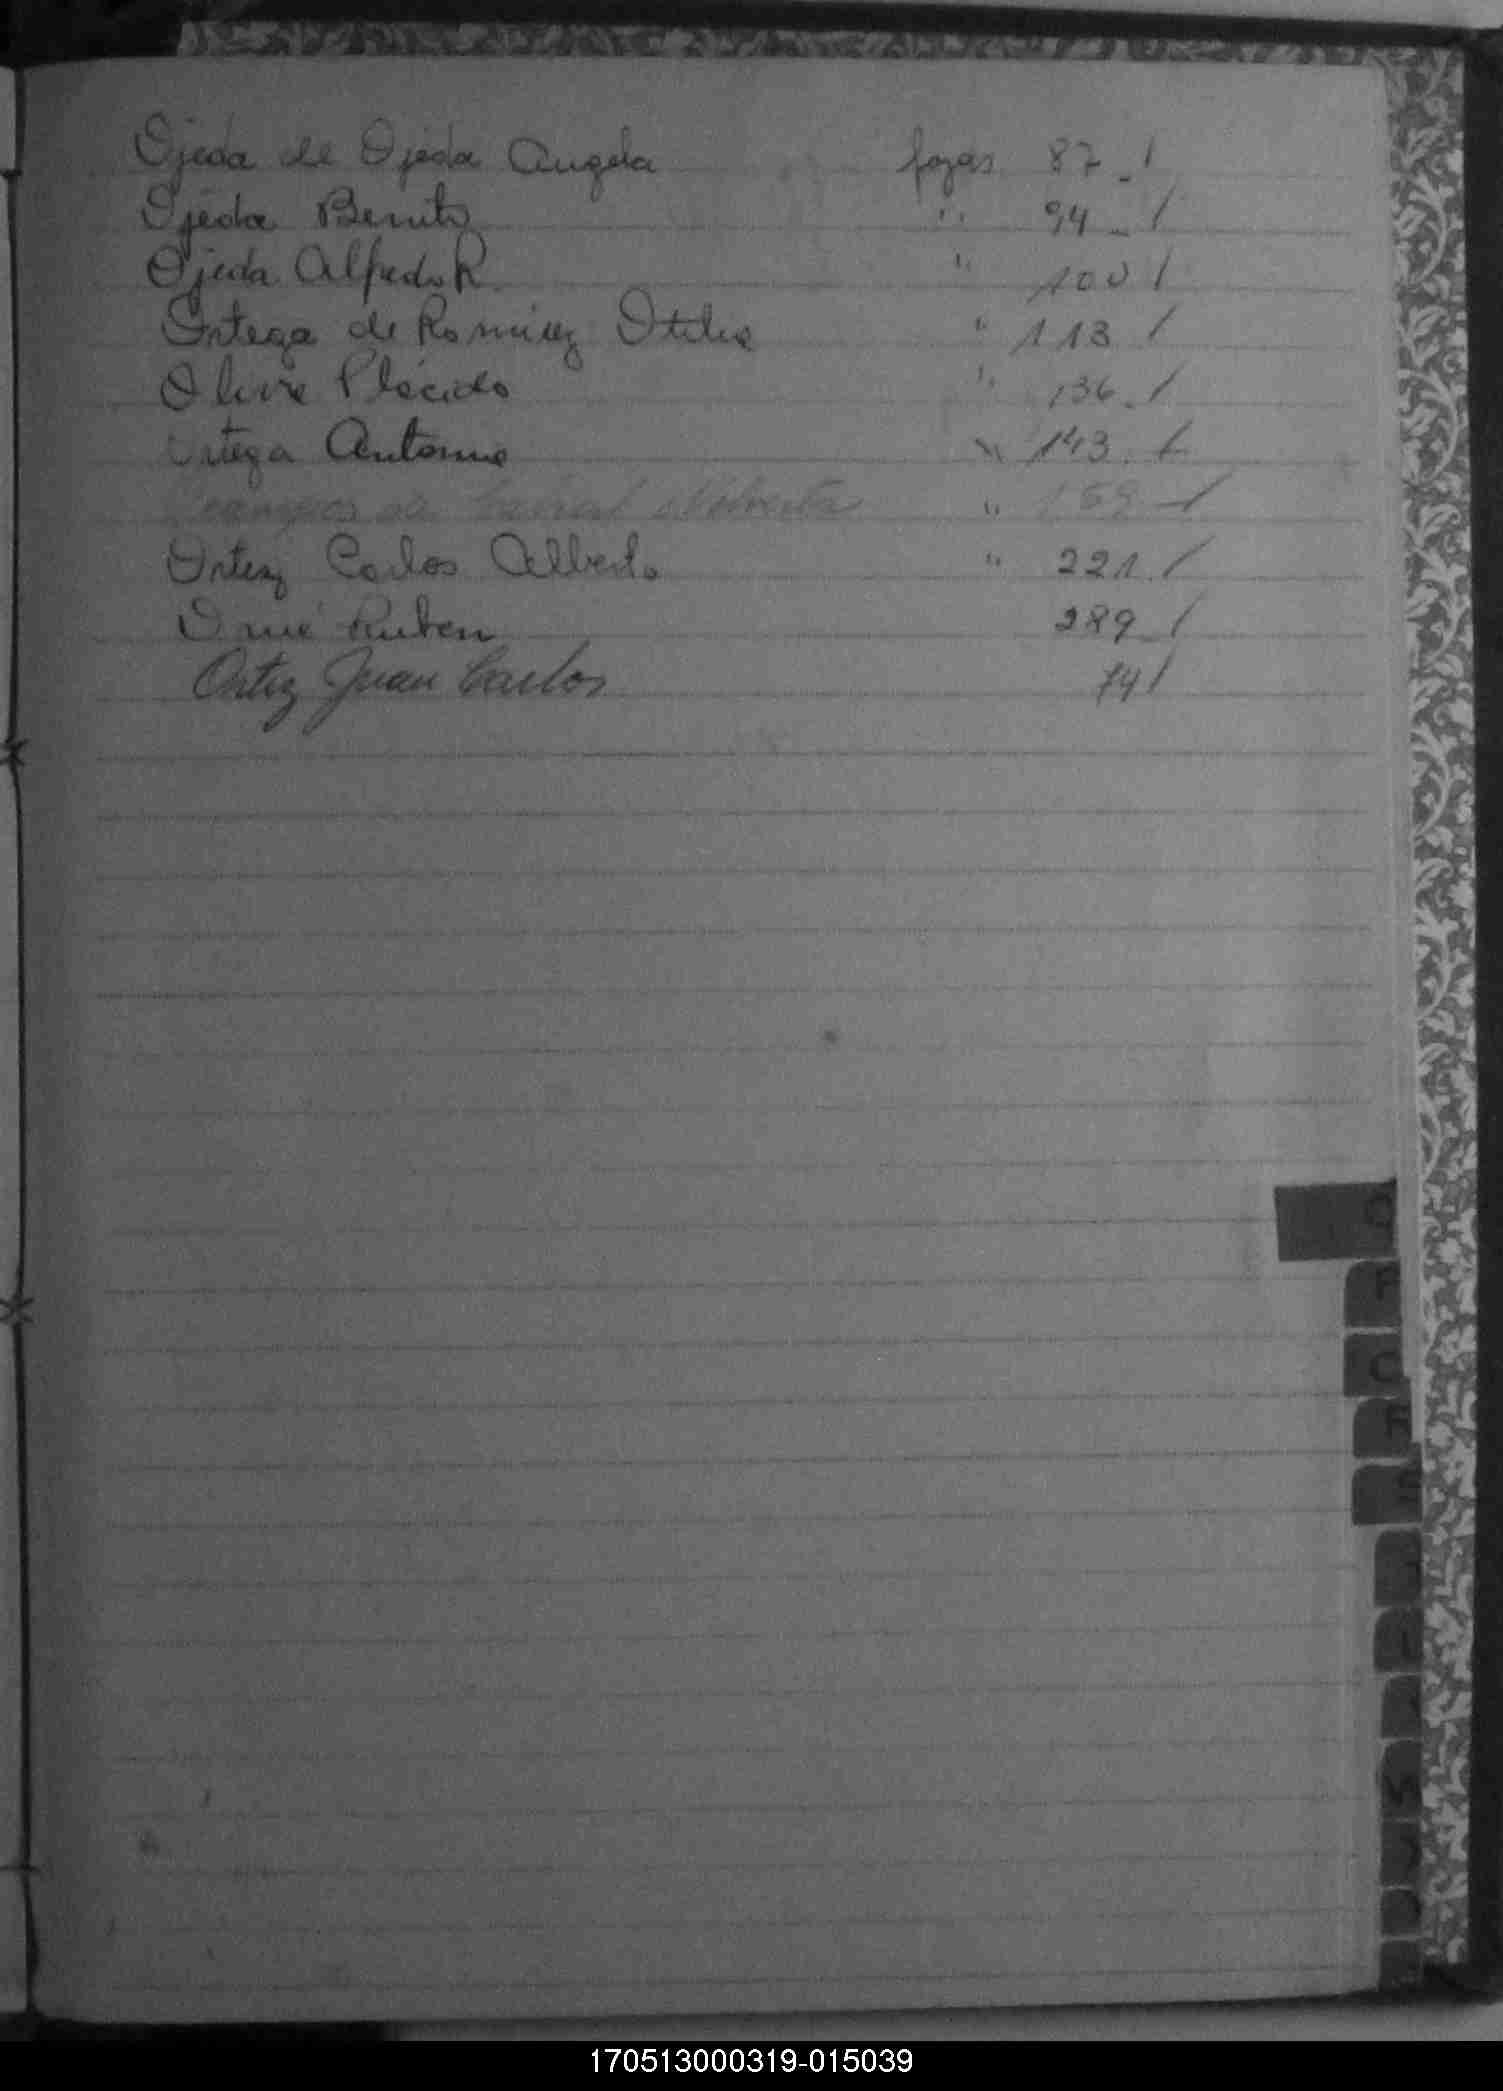 Ojeda de Ojeda Angela fojas 87_/
Ojeda Benito " 94_/
Ojeda Alfredo R. " 100 /
Ortega de Romirez Otilia " 113 /
Olive Plácido " 136_/
Ortega Antonio " 143. /
Ocampos de Cabral " 159_/
Ortiz Carlos Alberto " 221. /
Omé Ruben 289_/
Ortiz Juan Carlos 74 /
O
P
Q
R
S
170513000319-015039